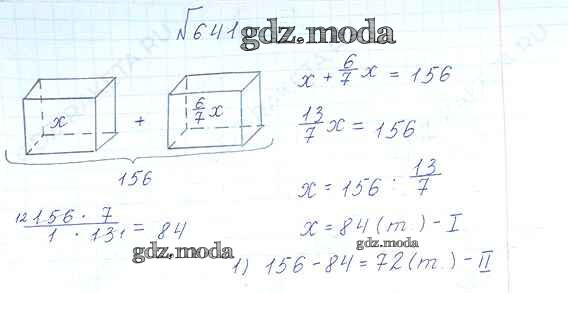 №641 gdz.moda
x + 6/7 x = 156
x + 6/7 x
13/7 x = 156
156
x = 156 : 13/7
12 156 · 7 / 1 · 13 1 = 84
x = 84 (т) - I
gdz.moda
gdz.moda
1) 156 - 84 = 72 (т.) - II